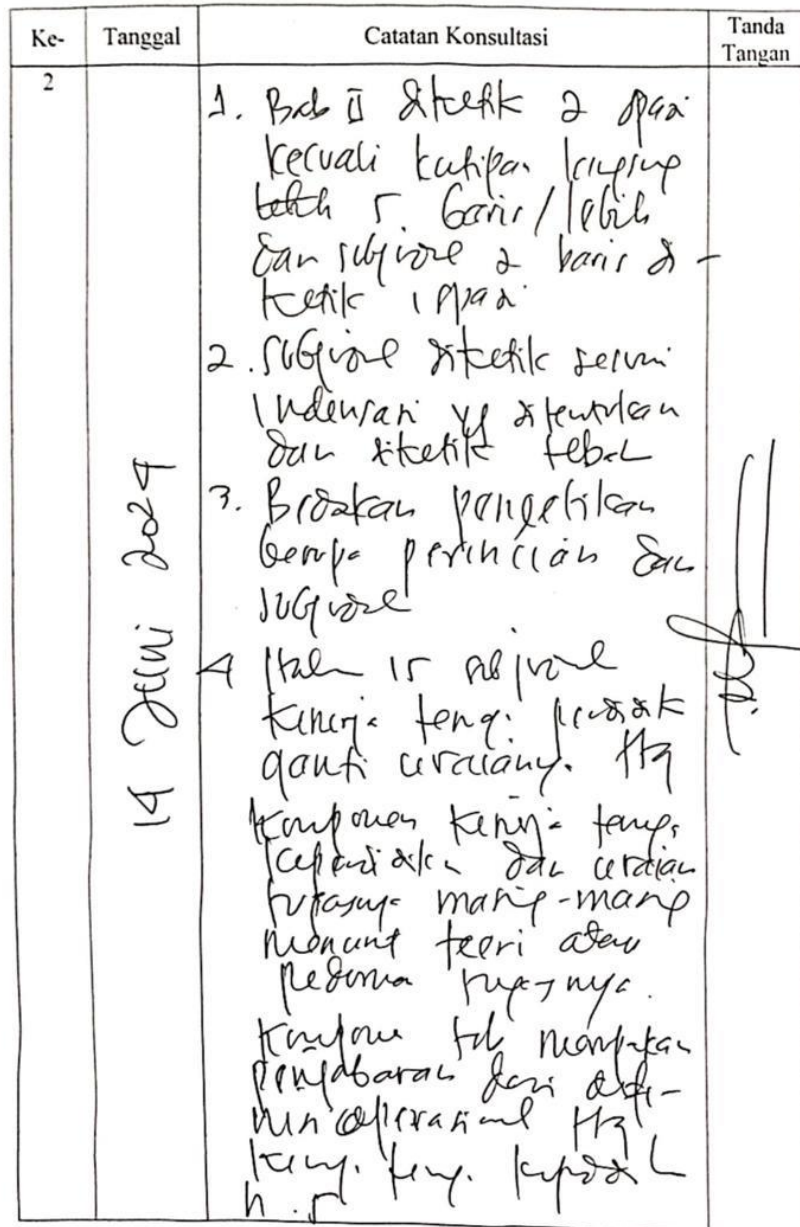 Ke- Tanggal Catatan Konsultasi Tanda Tangan
2
14 Juni 2024
1. Bab II diketik 2 spasi
kecuali kutipan langsung
5 baris/lebih
dan subjudul 2 baris di-
ketik 1 spasi
2. Subjudul diketik sesuai
indensasi yg ditentukan
dan diketik tebal
3. Bedakan pengetikan
berupa perincian dan
subjudul
4 Hal 15 subjudul
kinerja tenaga pendidik
ganti uraiannya. Ttg
komponen kinerja tenaga
kependidikan dan uraian
tugasnya masing-masing
menurut teori atau
pedoman tugasnya.
Komponen tsb merupakan
penjabaran dari defi-
nisi operasional ttg